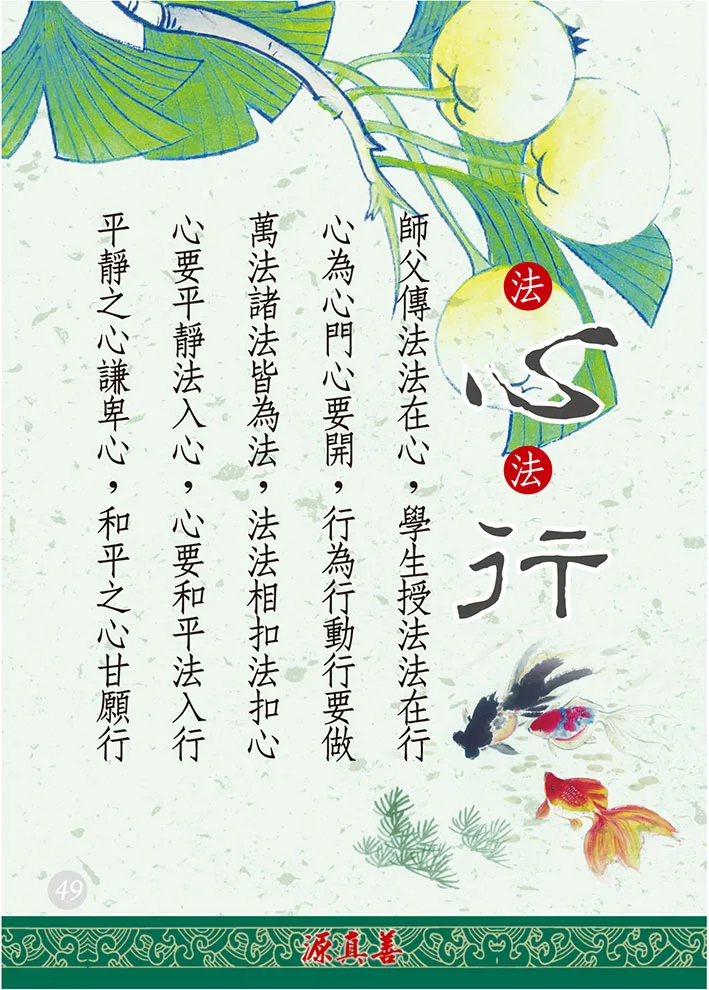 法心法行
師父傳法法在心，學生授法法在行
心為心門心要開，行為行動行要做
萬法諸法皆為法，法法相扣法扣心
心要平靜法入心，心要和平法入行
平靜之心謙卑心，和平之心甘願行
49
源真善